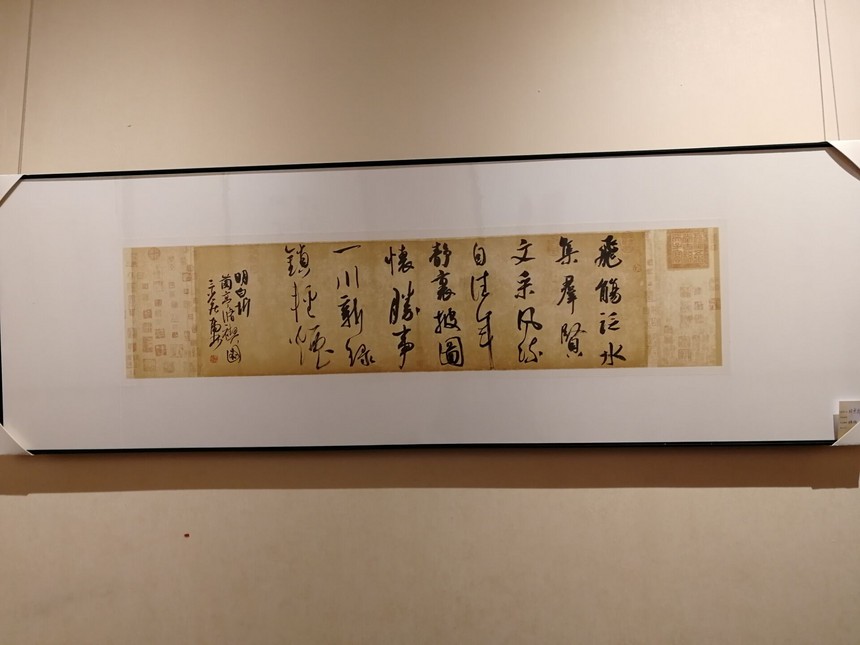 飛觴泛水
集羣賢
文采風流
自往年
靜裏披圖
懷勝事
一川新綠
鎖輕煙
明白圻
蘭亭脩禊圖